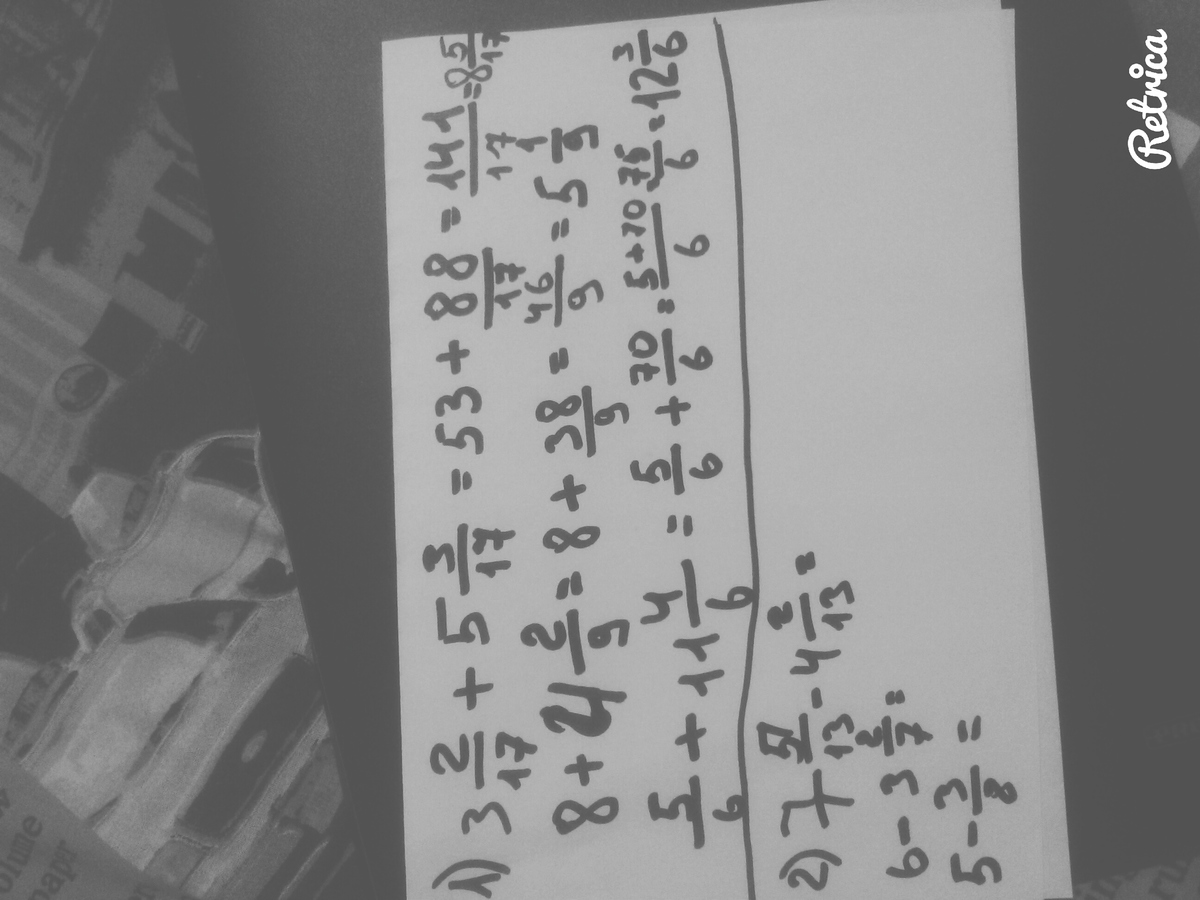 1) 3 2/17 + 5 3/17 = 53 + 88/17 = 141/17 = 8 5/17
8 + 4 2/9 = 8 + 38/9 = 46/9 = 5 1/9
5/6 + 11 4/6 = 5/6 + 70/6 = 5+70/6 = 75/6 = 12 3/6
2) 7 5/13 - 4 2/13 =
6 - 3 2/7 =
5 - 3/8 =
Retrica